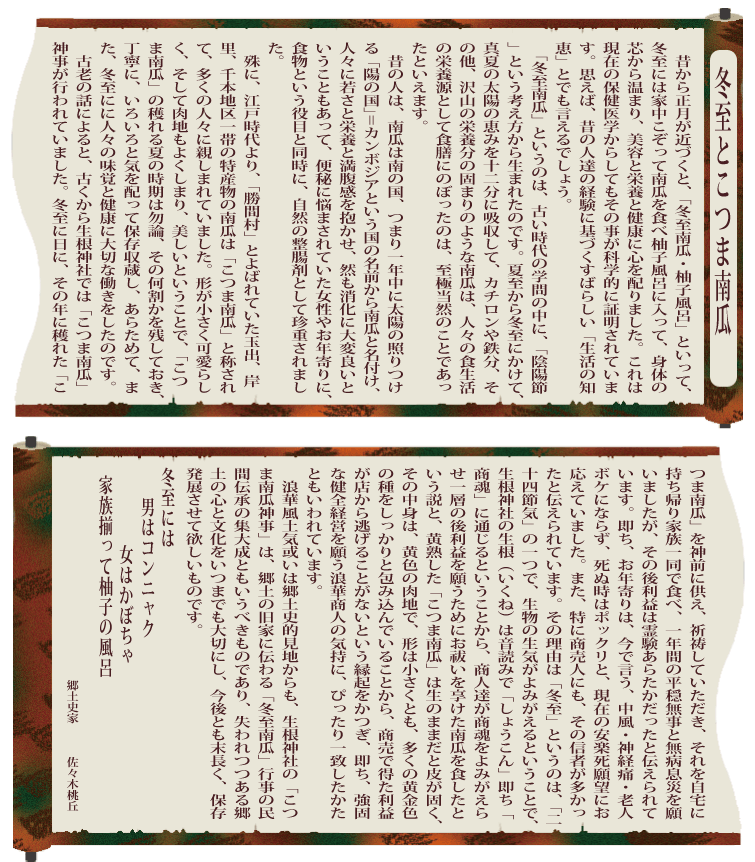 冬至とこつま南瓜
　昔から正月が近づくと、「冬至南瓜・柚子風呂」といって、
冬至には家中こぞって南瓜を食べ柚子風呂に入って、身体の
芯から温まり、美容と栄養と健康に心を配りました。これは
現在の保健医学からしてもその事が科学的に証明されていま
す。思えば、昔の人達の経験に基づくすばらしい「生活の知
恵」とでも言えるでしょう。
　「冬至南瓜」というのは、古い時代の学問の中に、「陰陽節
」という考え方から生まれたのです。夏至から冬至にかけて、
真夏の太陽の恵みを十二分に吸収して、カチロンや鉄分、そ
の他、沢山の栄養分の固まりのような南瓜は、人々の食生活
の栄養源として食膳にのぼったのは、至極当然のことであっ
たといえます。
　昔の人は、南瓜は南の国、つまり一年中に太陽の照りつけ
る「陽の国」＝カンボジアという国の名前から南瓜と名付け、
人々に若さと栄養と満腹感を抱かせ、然も消化に大変良いと
いうこともあって、便秘に悩まされていた女性やお年寄りに、
食物という役目と同時に、自然の整腸剤として珍重されまし
た。
　殊に、江戸時代より、「勝間村」とよばれていた玉出、岸
里、千本地区一帯の特産物の南瓜は「こつま南瓜」と称され
て、多くの人々に親しまれていました。形が小さく可愛らし
く、そして肉地もよくしまり、美しいということで、「こつ
ま南瓜」の穫れる夏の時期は勿論、その何割かを残しておき、
丁寧に、いろいろと気を配って保存収蔵し、あらためて、ま
た、冬至に人々の味覚と健康に大切な働きをしたのです。
　古老の話によると、古くから生根神社では「こつま南瓜」
神事が行われていました。冬至に日に、その年に穫れた「こ
つま南瓜」を神前に供え、祈祷していただき、それを自宅に
持ち帰り家族一同で食べ、一年間の平穏無事と無病息災を願
いましたが、その後利益は霊験あらたかだったと伝えられて
います。即ち、お年寄りは、今で言う、中風・神経痛・老人
ボケにならず、死ぬ時はポックリと、現在の安楽死願望にお
応えていました。また、特に商売人にも、その信者が多かっ
たと伝えられています。その理由は「冬至」というのは、「二
十四節気」の一つで、生物の生気がよみがえるということで、
生根神社の生根（いくね）は音読みで「しょうこん」即ち「
商魂」に通じるということから、商人達が商魂をよみがえら
せ一層の後利益を願うためにお祓いを享けた南瓜を食したと
いう説と、黄熟した「こつま南瓜」は生のままだと皮が固く、
その中身は、黄色の肉地で、形は小さくとも、多くの黄金色
の種をしっかりと包み込んでいることから、商売で得た利益
が店から逃げることがないという縁起をかつぎ、即ち、強固
な健全経営を願う浪華商人の気持に、ぴったり一致したかた
ともいわれています。
　浪華風土気或いは郷土史的見地からも、生根神社の「こつ
ま南瓜神事」は、郷土の旧家に伝わる「冬至南瓜」行事の民
間伝承の集大成ともいうべきものであり、失われつつある郷
土の心と文化をいつまでも大切にし、今後とも末長く、保存
発展させて欲しいものです。
冬至には
男はコンニャク
女はかぼちゃ
家族揃って柚子の風呂
郷土史家　佐々木桃丘